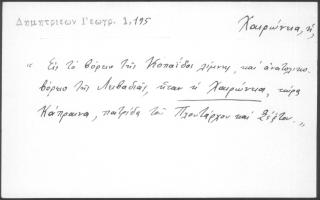 Δημητριέων Γεωγρ. 1,195
Χαιρώνεια, ἡ,
"Εἰς τὸ βόρειο τῆς Κοπαΐδος λίμνης, καὶ ἀνατολικο-
βόρεια τῆς Λεβαδιᾶς, ἦταν ἡ Χαιρώνεια, τώρα
Κάπραινα, πατρίδα τοῦ Πλουτάρχου καὶ Σέξτου."